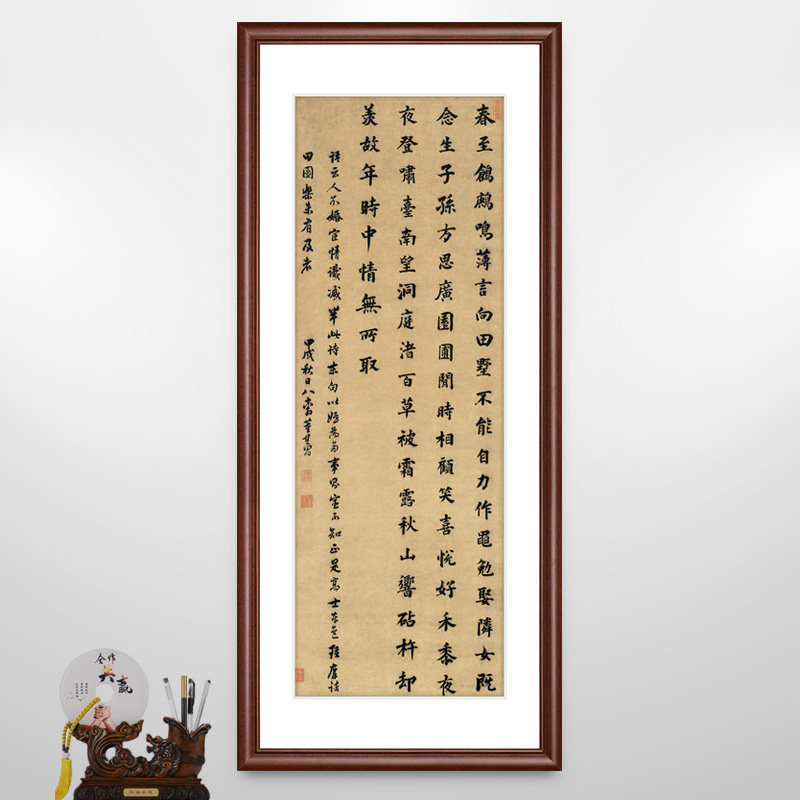 春至鶬鶊鳴薄言向田墅不能自力作黽勉娶隣女既
念生子孫方思廣園圃閒時相顧笑喜悅好禾黍夜
夜登嘯臺南望洞庭渚百草被霜露秋山響砧杵却
羨故年時中情無所取
語云人不婚宦情識减半此詩末句以 事 宦 不知正是高士
田園樂未有及者
甲戌秋日八十翁董其昌
合作
共赢